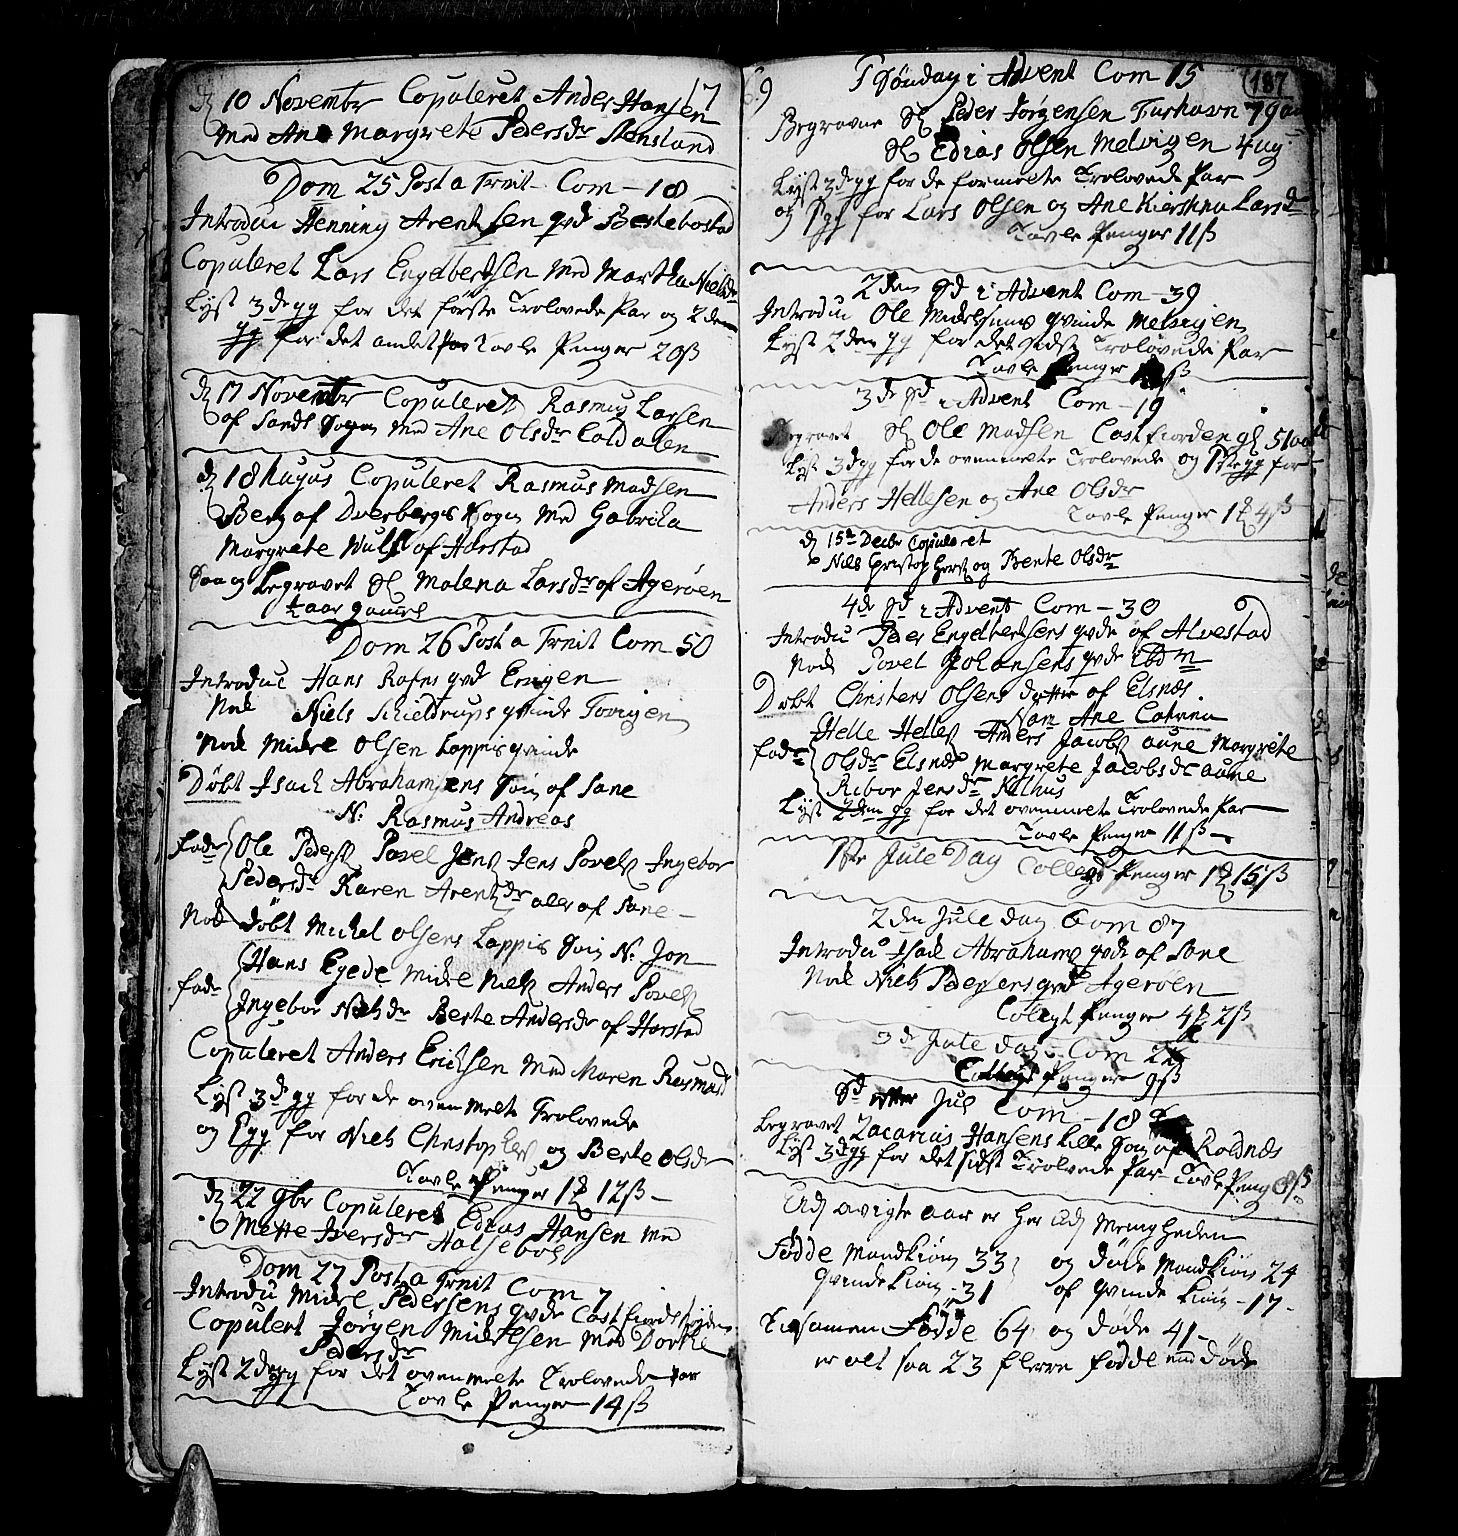 17
d 10 Novembr Copuleret Anders Hansen
Med Ane Margrete Pedersdr Stensland
Dom 25 Post a Trnit- Com - 18
Introduc Henning Arentsen qvd Bestebostad
Copuleret Lars Engelbertsen med Martha Nielsdr
Lyst 3de gg for det förste Trolovede Par og 2den
gg for det andet Par Tavle Penger 20 ß
d 17 Novembr Copuleret Rasmus Larsen
af Sands Sogn med Ane Olsdr Caldalen
d 18 hujus Copuleret Rasmus Madsen
Berg af Dverbergs Sogn Md Gabrika
Margrete Wulf of Harstad
Saa og begravet Sl Malena Larsdr of Ageröen
1/2 aar gammel
Dom 26 Post a Trnit Com 50
Introduc Hans Rafns qvd Eringen
Nok Niels Schieldrups qvinde Tovigen
Nok Mickel Olsen Lappis qvinde
Döbt Isach Abrahamsens Sön of Sane
N: Rasmus Andreas
fadr Ole Peders Povel Jens Jens Povels Ingebor
Pedersdr Karen Arentzdr alle of Sane -
Nok döbt Mickel Olsens Lappis Sön N: Jon
fadr Hans Egede Mickel Niels Anders Povels
Ingebor Nielsdr Berte Andersdr of Harstad
Copuleret Anders Ericksen med Maren Rasmusd
Lyst 3de gg for de ovenmelte Trolovede
og gg for Niels Christophers og Berte Olsdr
Tavle Penger 12 ß -
d 22 9br Copuleret Edias Hansen med
Mette Iversdr Halsebol
Dom 27 Post a Trnit Com 7
Introdu Mickel Pedersens qvde Castfiords
Copulert Jörgen Mickelsen Med Dorthe
Pedersdr
Lyst 2den gg for det ovenmelte Trolovede Par
Tavle Penger 14 ß
187
1 Söndag i Advent Com 15
Begravne Sl Peder Jörgensen Turhavn 79 aar
Sl Edias Olsen Melvigen 4 ug
Lyst 3de gg for de formelte Trolovede Par
og gg for Lars Olsen og Ane Kierstina Larsdr
Tavle Penger 11 ß
2den Sd i Advent Com - 39
Introdu Ole Mickelsens qvinde Melvigen
Lyst 2den gg for det sidst Trolovede Par
Tavle Penger ß
3de Sd i Advent Com - 19
Begravet Sl Ole Madsen Castfiorden gl 51 aar
Lyst 3de gg for de ovenmelte Trolovede og 1ste gg for
Anders Hellesen og Ane Olsdr
Tavle Penger 1 4 ß
d 15de Decbr Copuleret
Niels Christophers og Bente Olsdr
4de Sd i Advent Com - 30
Introdu Peder Engelbertsens qvde of Alvestad
Nok Povel Johansens qvde ibdm
Döbt Christens Olsens datter af Elsnæs.
Nom Ane Catrina
fadr Helle Helles Anders Jacobs aune Margrete
Olsdr Elsnæs Margrete Jacobsdr aune
Ribor Jensdr Nilhus
Lyst 2den gg for det ovenmelt Trolovede Par
Tavle Penger 11 ß -
1ste Jule Dag Collect Penger 1 15 ß
2den Jule dag Com 87
Introdu Isac Abrahams qvde of Sane
Nok Niels Pedersens qvd Ageröen
Colegt Penger 4 2 ß
3de Jule dag Com 2
Collegt Penger 9 ß
Sd efter Jul Com - 18
begravet Zacarias Hansens lille Sön af Roldnæs
Lyst 3de gg for det sidst Trolvede Par - Tavle Peng 8 ß
Udj avigte aar er her udj Menigheden
Födde Mandkiön 33 og döde Mandkiön 24
Qvindekiön - 31 of qvinde kiön - 17 -
Tilsamen Födde 64 og döde 41 -
er alt saa 23 flerre födde end döde